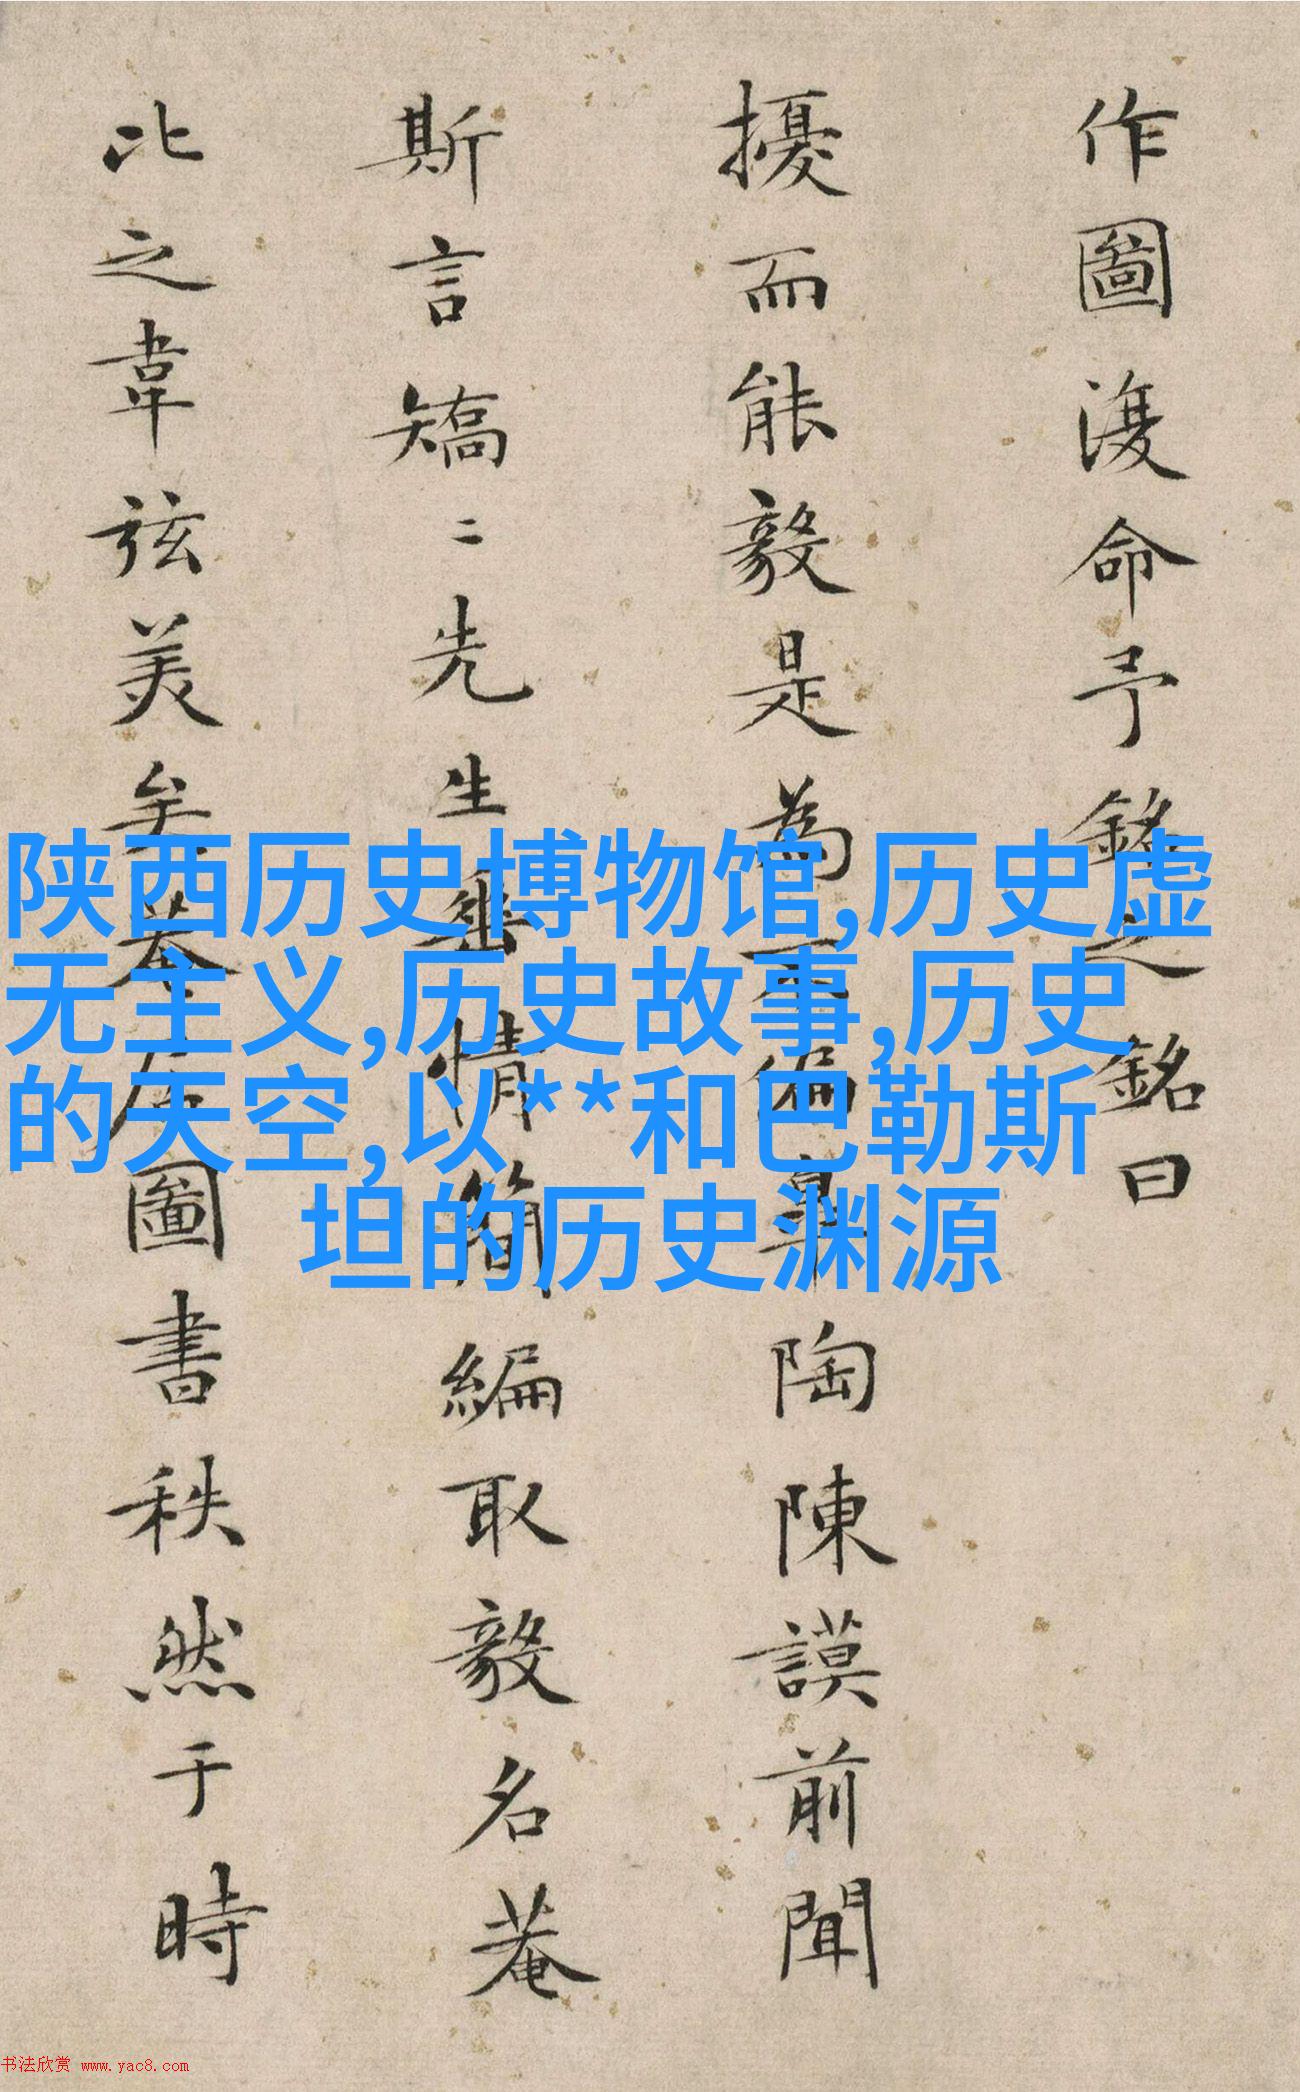 作圖復命予銘之銘曰
擾而能毅是為不偏皋陶陳謨前聞
斯言矯二先生垂情簡編取毅名菴
比之韋弦美矣菴圖書秩然于時
陕西历史博物馆,历史虚
无主义,历史故事,历史
的天空,以**和巴勒斯
坦的历史渊源
书法欣赏 www.yac8.com